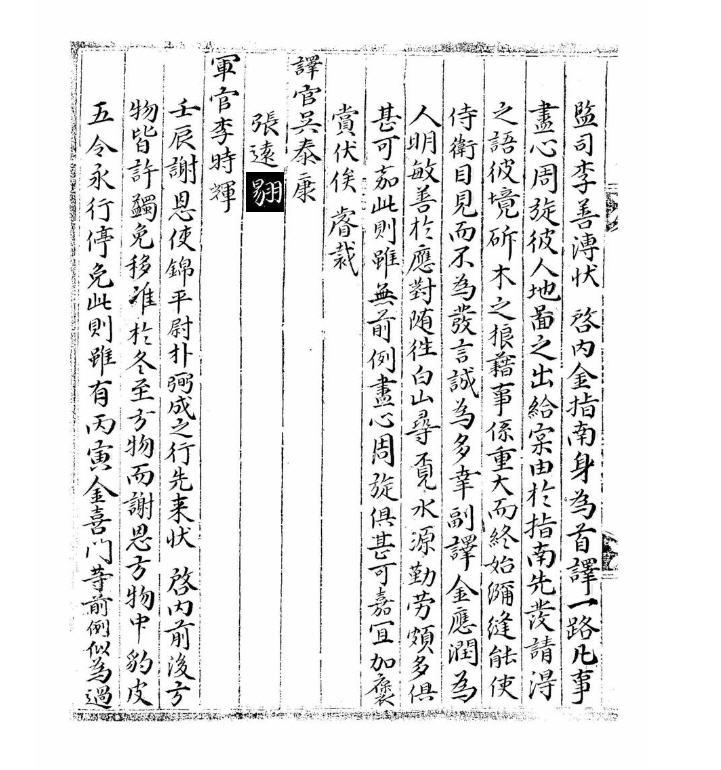 監司李善溥狀 啓內金指南身為首譯一路凡事
盡心周旋彼人地啚之出給宲由於指南先發請淂
之語彼境斫木之狼藉事係重大而終始彌縫能使
侍衛目見而不為發言誠為多幸副譯金應㵎為
人明敏善於應對随徃白山尋覔水源勤劳頗多俱
甚可嘉此則雖無前例盡心周旋俱甚可嘉冝加褒
賞伏俟 睿裁
譯官吳泰康
張遠翮
軍官李時輝
壬辰謝恩使錦平尉朴弼成之行先来狀 啓內前後方
物皆許蠲免移准於冬至方物而謝恩方物中豹皮
五令永行停免此則雖有丙寅金喜門等前例似為過